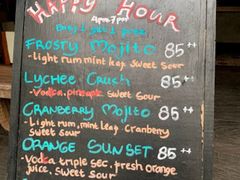 HAPPY HOUR
4pm-7pm
FROSTY MOJITO 85++
- Light rum, mint leaf, sweet sour
LYCHEE CRUSH 85++
- Vodka, pineaple sweet sour
CRANBERRY MOJITO 85++
- Light RUM, mint leaf, Cranberry
sweet sour
ORANGE SUNSET 85++
- Vodka triple sec, fresh orange
juice, sweet sour